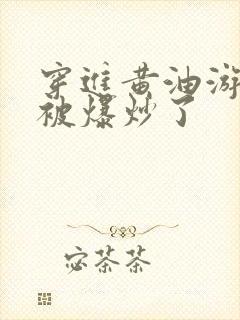 穿进黄油游
被爆炒了
宓茶茶